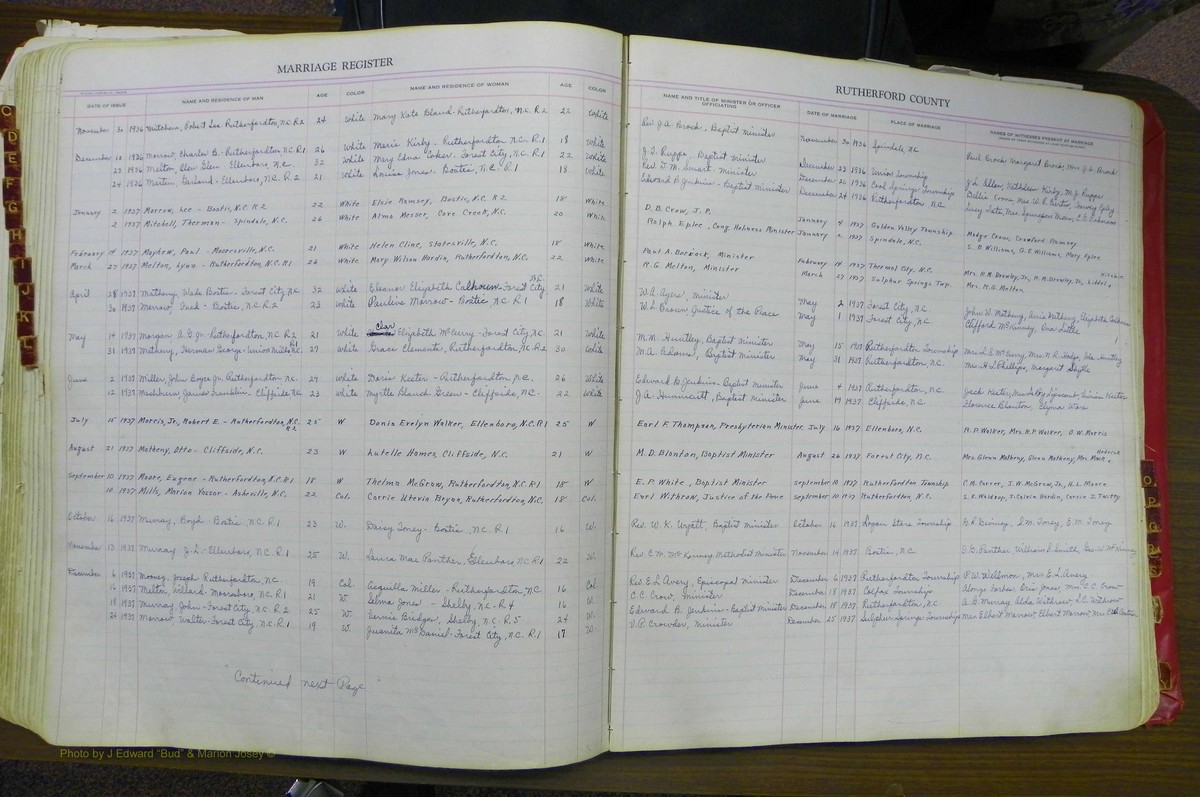 MARRIAGE REGISTER
DATE OF ISSUE NAME AND RESIDENCE OF MAN AGE COLOR NAME AND RESIDENCE OF WOMAN AGE COLOR
November 30 1936 Robert Lee Rutherfordton, N.C. R2 24 White Mary Kate Bland - Rutherfordton, N.C. R2 22 White
December 10 1936 Morrow, Charlie B. - Rutherfordton N.C. R1 26 White Marie Kirby - Rutherfordton N.C. R1 18 White
23 1936 Melton, Glen Ellenboro N.C. 32 White Mary Edna Coker - Forest City, N.C. R1 22 White
24 1936 Martin, Garland - Ellenboro, N.C. R2 21 White Louise Jones - Bostic, N.C. R1 18 White
January 2 1937 Morrow, Lee - Bostic, N.C. R2 22 White Elsie Ramsey, Bostic, N.C. R2 18 White
2 1937 Mitchell, Therman - Spindale, N.C. 26 White Alma Messer, Cove Creek, N.C. 20 White
February 14 1937 Mayhew, Paul - Mooresville, N.C. 21 White Helen Cline, Statesville, N.C. 18 White
March 27 1937 Melton, Lynn - Rutherfordton, N.C. R1 26 White Mary Wilson Hardin, Rutherfordton, N.C. 22 White
April 28 1937 Matheny, Wade Bostic - Forest City N.C. 32 White Eleanor Elizabeth Calhoun Forest City N.C. 21 White
30 1937 Morrow, - Bostic, N.C. R2 23 White Pauline Morrow - Bostic N.C. R1 18 White
May 14 1937 Morgan A.G. Jr. - Rutherfordton, N.C. R2 21 White Clar Elizabeth McCurry - Forest City, N.C. 21 White
31 1937 Matheny, Herman George - Union Mills N.C. R1 27 White Grace Clements, Rutherfordton, N.C. R2 30 White
June 2 1937 Miller, John Boyce Jr. Rutherfordton N.C. 27 White Doris Keeter - Rutherfordton N.C. 26 White
12 1937 Mashburn, James Franklin - Cliffside N.C. 23 White Myrtle Blanch Green - Cliffside, N.C. 22 White
July 15 1937 Morris, Jr., Robert E. - Rutherfordton, N.C. R2 25 W Donia Evelyn Walker, Ellenboro, N.C. R1 25 W
August 21 1937 Matheny, Otto - Cliffside, N.C. 23 W Lutelle Hames, Cliffside, N.C. 21 W
September 10 1937 Moore, Eugene - Rutherfordton, N.C. R1 18 W Thelma McGraw, Rutherfordton, N.C. R1 18 W
10 1937 Mills, Marion Vassor - Asheville, N.C. 22 Col. Carrie Utevia Bryan, Rutherfordton, N.C. 18 Col.
October 16 1937 Murray, Boyd - Bostic N.C. R1 23 W. Daisy Toney - Bostic, N.C. R.1 16 W.
November 13 1937 Murray J.L. - Ellenboro, N.C. R1 25 W. Laura Mae Panther, Ellenboro, N.C. R1 22 W.
December 6 1937 Mooney, Joseph Rutherfordton, N.C. 19 Col. Aequilla Miller - Rutherfordton, N.C. 16 Col
16 1937 Melton, Willard Mooresboro, N.C. R1 21 W Selma Jones - Shelby, N.C. R4 16 W.
18 1937 Murray, John - Forest City, N.C. R.2 25 W. Vernie Bridges, Shelby, N.C. R.5 24 W.
24 1937 Morrow, Walter - Forest City, N.C. R1 19 W. Juanita McDaniel - Forest City, N.C. R1 17 W.
Continued next Page
RUTHERFORD COUNTY
NAME AND TITLE OF MINISTER OR OFFICER OFFICIATING DATE OF MARRIAGE PLACE OF MARRIAGE NAMES OF WITNESSES PRESENT AT MARRIAGE
Rev J.A. Brock, Baptist minister November 30 1936 Spindale NC Paul Brock, Margaret Brock, Mrs J.A. Brock
J.T. Ruppe, Baptist minister December 1936 Union Township J.L. Allen, Kathleen Kirby, M.J. Ruppe
Rev. D.M. Smart - Minister December 26 1936 Cool Springs Township
Edward B. Jenkins - Baptist Minister December 24 1936 Rutherfordton, N.C.
D.B. Crow, J.P. January 4 1937 Golden Valley Township Madge Crow, Crawford Ramsey
Ralph Epley, Cong. Holiness Minister January 2 1937 Spindale, N.C. S.D. Williams, G.E. Williams, Mary Epley
Paul A. Bocrock, Minister February 14 1937 Thermal City, N.C. Mrs. H.M.
R.G. Melton, Minister March 27 1937 Sulphur Springs Twp. Mrs. R.G. Melton
W.A. Ayers, minister May 2 1937 Forest City, N.C. John W. Matheny, Elizabeth Calhoun
W.L. Brown, Justice of the Peace May 1 1937 Forest City, N.C. Clifford McKinney, Little
M.M. Huntley, Baptist minister May 15 1937 Rutherfordton Township Mrs L.E. McCurry, Mrs N.R. Hodge, John Huntley
M.A. Adams, Baptist minister May 31 1937 Rutherfordton, N.C. Mrs. H.L. Phillips, Margaret
Edward B. Jenkins - Baptist Minister June 4 1937 Rutherfordton, N.C. Jack Keeter
J.A. Hunnicutt, Baptist minister June 19 1937 Cliffside, N.C. Florence Blanton, Elyma
Earl F. Thompson, Presbyterian Minister July 16 1937 Ellenboro, N.C. R.P. Walker, Mrs. R.P. Walker, O.W. Morris
M.D. Blanton, Baptist Minister August 26 1937 Forest City, N.C. Mrs. Glenn Matheny, Glenn Matheny, Mrs. Mack Hedrick
E.P. White, Baptist Minister September 10 1937 Rutherfordton Township C.M. Carver, J.W. McGraw, Jr., H.L. Moore
Earl Withrow, Justice of the Peace September 10 1937 Rutherfordton, N.C. S.R. Waldrop, J. Calvin Hardin, Carrie I. Twitty
Rev. W.K. Wyatt, Baptist minister October 16 1937 Logan Store Township S.M. Toney, E.M. Toney
Rev. C.M. McKinney Methodist Minister November 14 1937 Bostic, N.C. Panther, William L. Smith, Geo. W. McKinney
Rev. E.L. Avery, Episcopal minister December 6 1937 Rutherfordton Township P.W. Wellmon, Mrs E.L. Avery
C.C. Crow, Minister December 18 1937 Colfax Township Alonzo Forbes, Eris Jones, Mrs. C.C. Crow
Edward B. Jenkins - Baptist Minister December 18 1937 Rutherfordton, N.C. A.G. Murray, Alda Withrow, J.C. Withrow
V.P. Crowder, Minister December 25 1937 Sulphur Springs Township Mrs Elbert Morrow, Elbert Morrow
C
D
E
F
G
H
I
J
K
L
O
P
Q
R
S
Y
Photo by J Edward "Bud" & Marion Josey ©